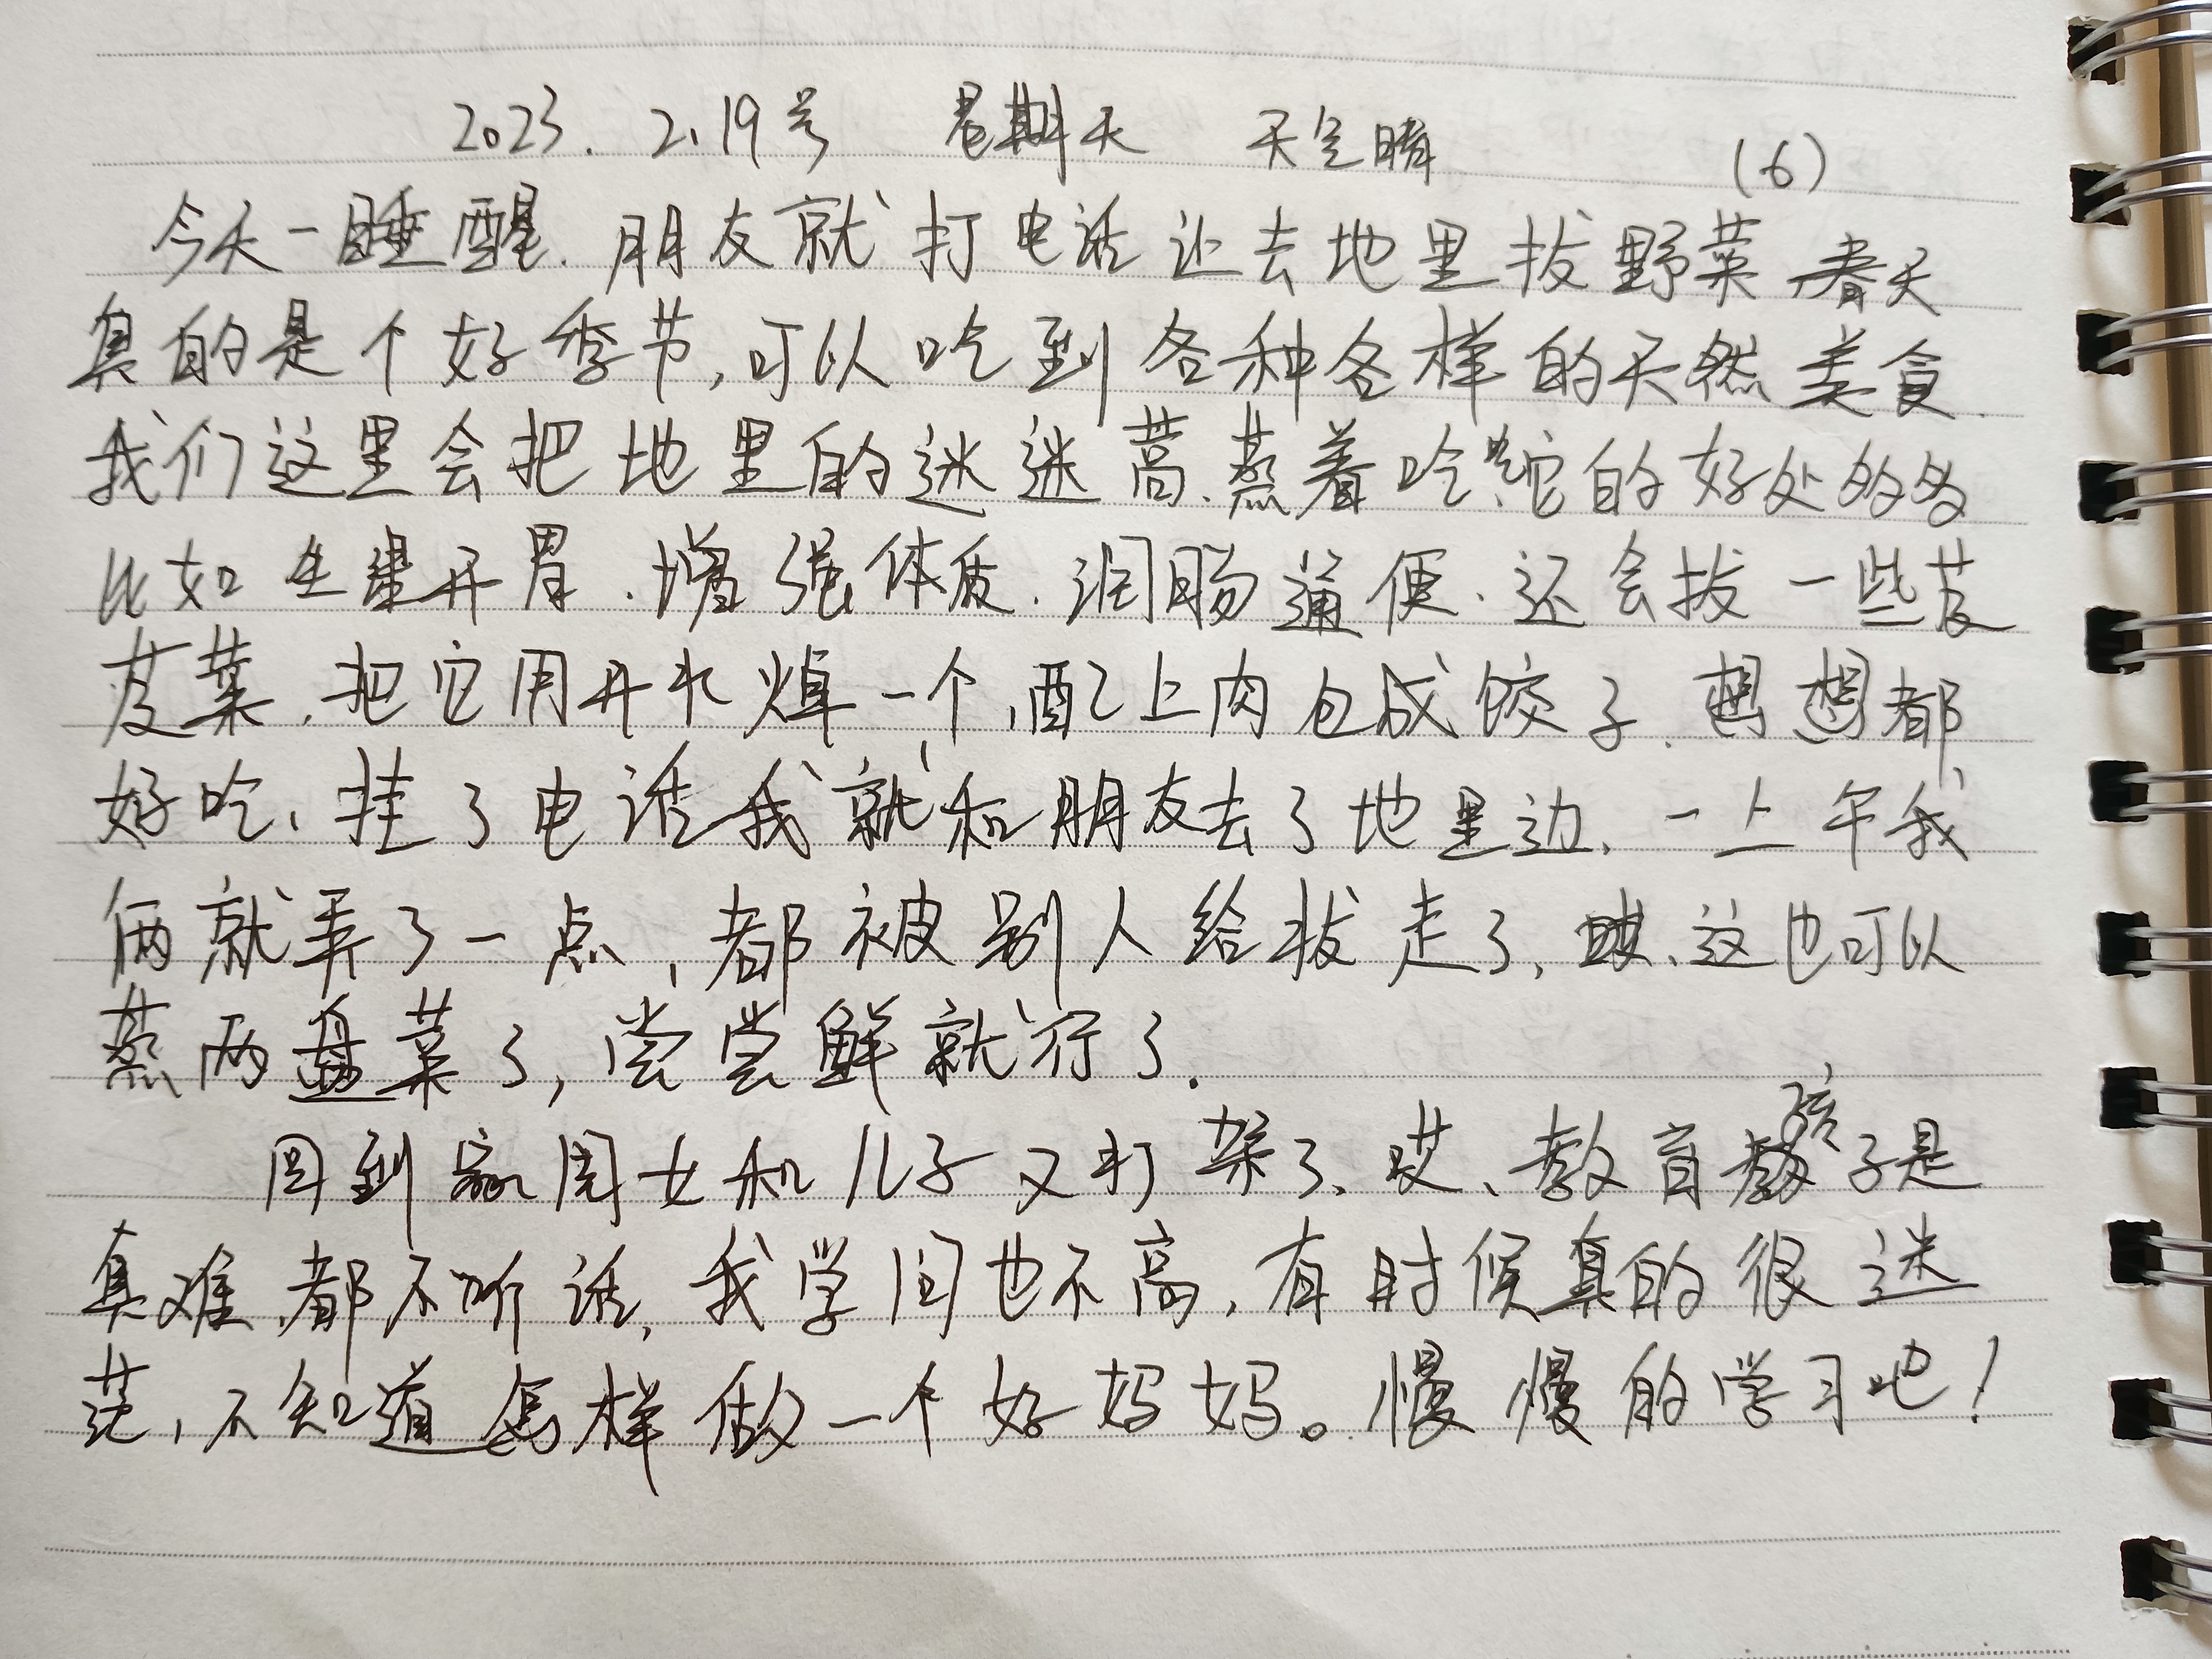 2023. 2.19号 星期天 天空晴 (6)
今天一睡醒.朋友就打电话让去地里拔野菜、春天
真的是个好季节,可以吃到各种各样的天然美食.
我们这里会把地里的迷迷蒿.蒸着吃它的好处多多
比如生津开胃.增强体质.润肠通便.还会拔一些芨
芨菜.把它用开水焯一个,配上肉包成饺子.想想都
好吃、挂了电话我就和朋友去了地里边.一上午我
俩就弄了一点,都被别人给拔走了,唉、这也可以
蒸两盘菜了,尝尝鲜就行了.
回到家闺女和儿子又打架了、哎、教育孩子是
真难.都不听话,我学问也不高,有时候真的很迷
茫,不知道怎样做一个好妈妈。慢慢的学习吧!